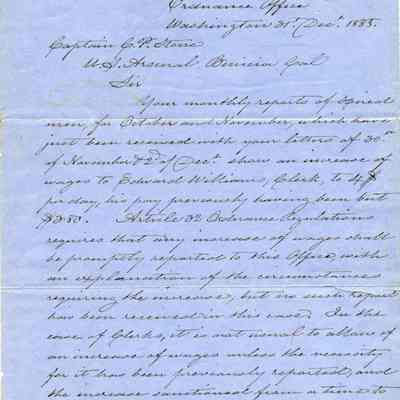 Ordnance Office
Washington 31st Decr. 1855.
Captain C. P. Stone
U. S. Arsenal Benicia Cal
Sir
Your monthly reports of Hired
men, for October and November, which have
just been received with your letters of 30th
of November & 2d of Decr. show an increase of
wages to Edward Williams, Clerk, to 4$
per day, his pay previously having been but
Article 32 Ordnance Regulations
requires that any increase of wages shall
be promptly reported to this Office, with
an explanation of the circumstances
requiring the increase, but no such report
has been received in this case. In the
case of Clerks, it is not usual to allow of
an increase of wages unless the necessity
for it has been previously reported, and
the increase sanctioned from a time to